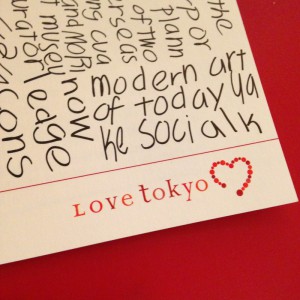 the
p or
plann
of two
erseas
and MORi
now
t museu
ledge
urator
cons
modern art
of today ya
ke socialk
LOVE tOKYO